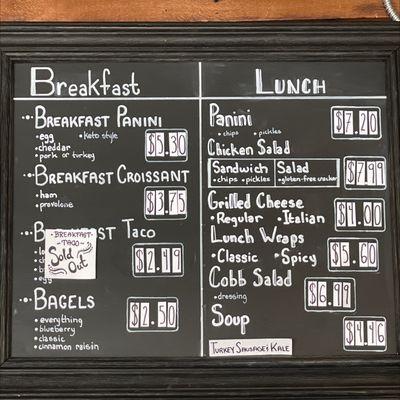 Breakfast
Breakfast Panini
• egg • keto style
• cheddar
• pork or turkey
$5.30
Breakfast Croissant
• ham
• provolone
$3.75
B st Taco
• BREAKFAST •
• TACO •
Sold Out
egg
$2.49
Bagels
• everything
• blueberry
• classic
• cinnamon raisin
$2.50
Lunch
Panini
• chips • pickles
$7.20
Chicken Salad
Sandwich Salad
• chips • pickles • gluten-free cracker
$7.99
Grilled Cheese
• Regular • Italian
$4.00
Lunch Wraps
• Classic • Spicy
$5.60
Cobb Salad
• dressing
$6.99
Soup
Turkey Sausage & Kale
$4.46